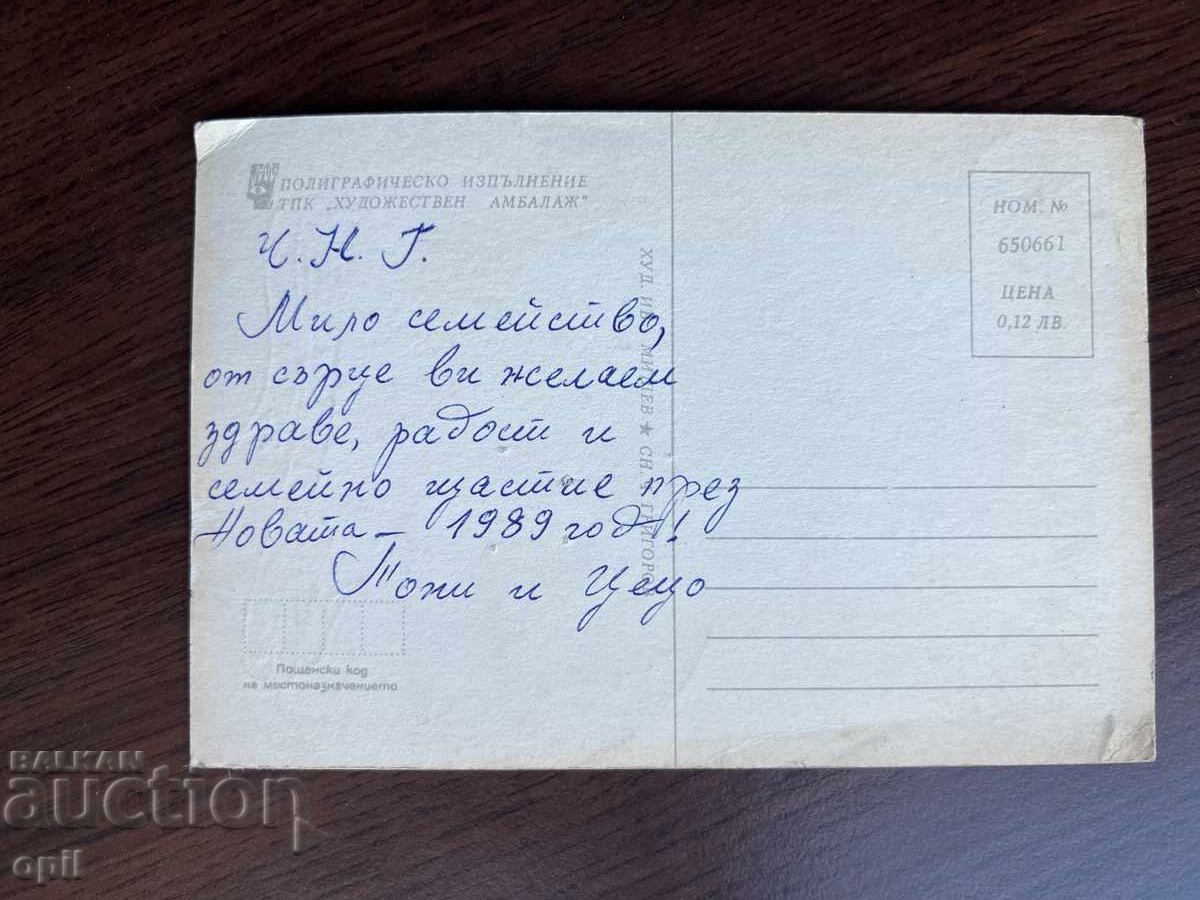 ПОЛИГРАФИЧЕСКО ИЗПЪЛНЕНИЕ
ТПК „ХУДОЖЕСТВЕН АМБАЛАЖ"
Ч.Н.Г.
Мило семейство,
от сърце ви желаем
здраве, радост и
семейно щастие през
Новата – 1989 год!
Тони и Цецо
Пощенски код
на местоназначението
ХУД ★ СН.
НОМ. №
650661
ЦЕНА
0,12 ЛВ.
BALKAN
auction
opil